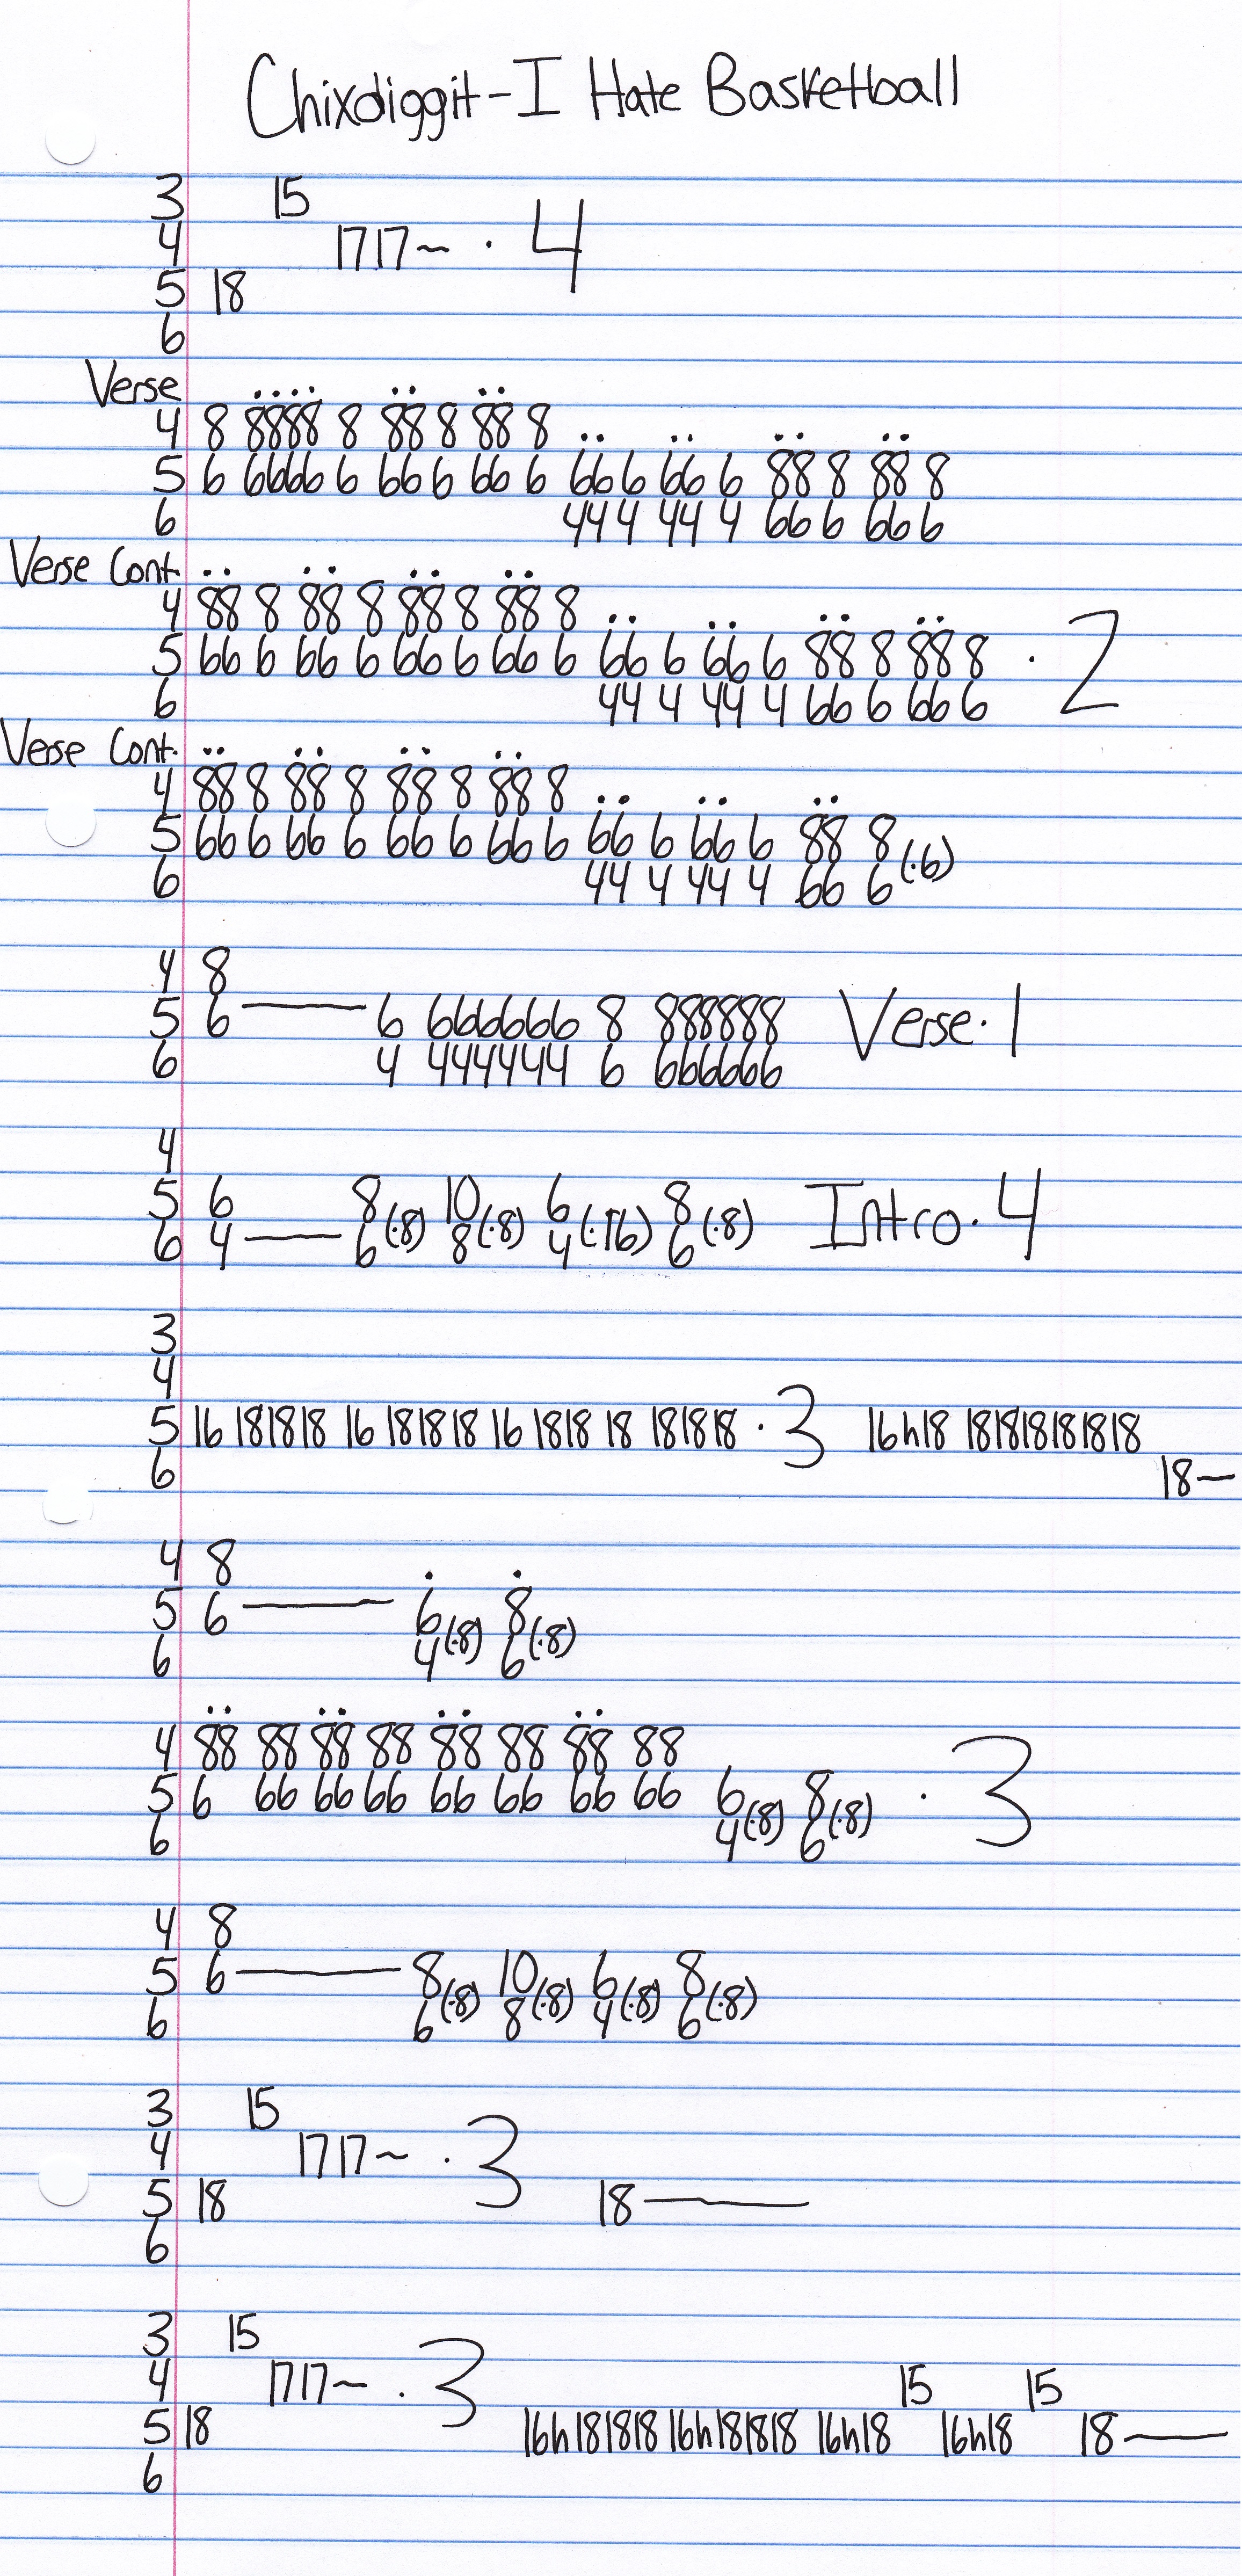 Chixdiggit-I Hate Basketball
3 15
4 1717~ · 4
5 18
6
Verse
4 8 8888 8 88 8 88 8
5 6 6666 6 66 6 66 6 66 6 66 6 88 8 88 8
6 44 4 44 4 66 6 66 6
Verse Cont.
4 88 8 88 8 88 8 88 8
5 66 6 66 6 66 6 66 6 66 6 66 6 88 8 88 8 · 2
6 44 4 44 4 66 6 66 6
Verse Cont.
4 88 8 88 8 88 8 88 8
5 66 6 66 6 66 6 66 6 66 6 66 6 88 8 (·6)
6 44 4 44 4 66 6
4 8
5 6 —— 6 666666 8 888888 Verse·1
6 4 444444 6 666666
4
5 6 8(·8) 10(·8) 6(·16) 8(·8) Intro·4
6 4 —— 6 8 4 6
3
4
5 16 181818 16 181818 16 1818 18 181818 · 3 16h18 181818181818
6 18~
4 8
5 6 —— 6(·8) 8(·8)
6 4 6
4 88 88 88 88 88 88 88 88
5 6 66 66 66 66 66 66 66 6(·8) 8(·8) · 3
6 4 6
4 8
5 6 —— 8(·8) 10(·8) 6(·8) 8(·8)
6 6 8 4 6
3 15
4 1717~ · 3
5 18 18 ——
6
3 15
4 1717~ · 3 15 15
5 18 16h181818 16h181818 16h18 16h18 18 ——
6